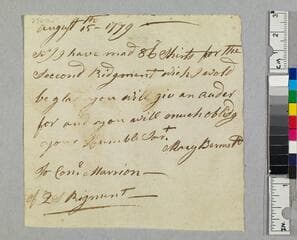 August th 15 - 1779
Sr/ I have mad 86 Shirts for the
Second Ridgment wich I wold
be glad you will giv an auder
for and you will much oblidg
your humble Sert
Mary Bennett
To Con. Marrion
of 2d Rigment